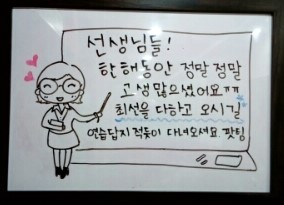 선생님들!
한해동안 정말정말
고생많으셨어요ㅠㅠ
최선을 다하고 오시길
연습답지 적듯이 다녀오세요. 팟팅